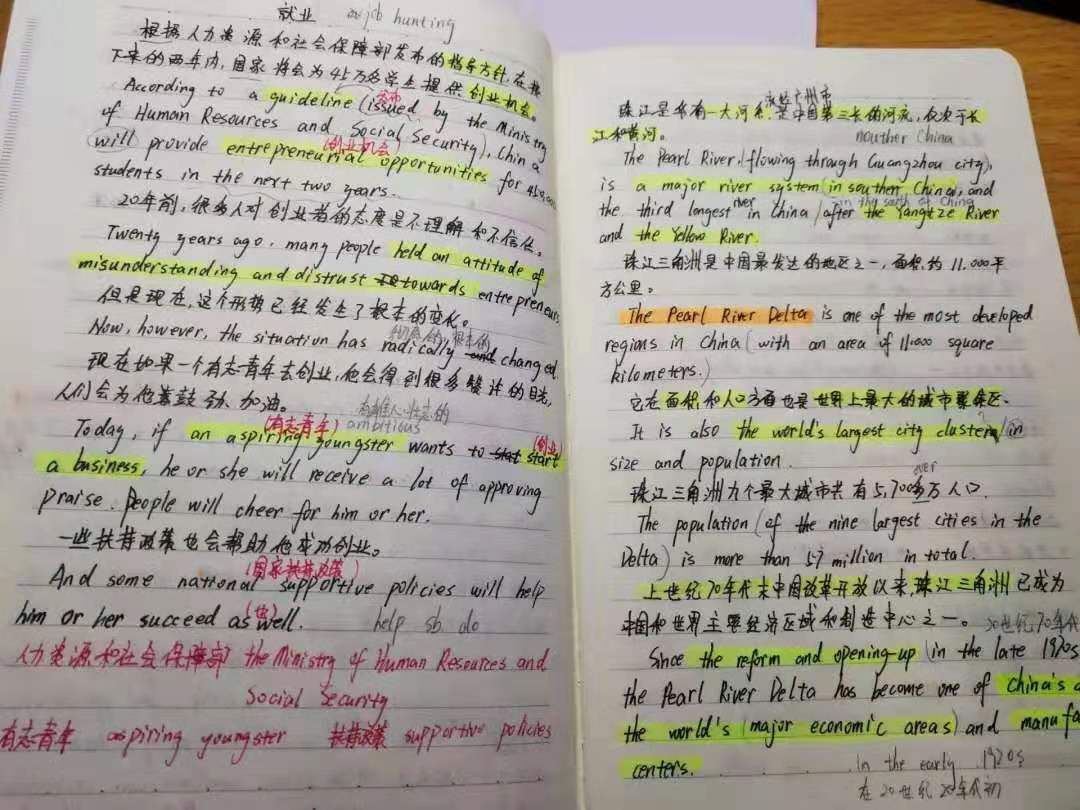 就业 job hunting
根据人力资源和社会保障部发布的指导方针,在接
下来的两年内,国家将会为45万名学生提供创业机会。
According to a guideline (issued by the Ministry
发布
of Human Resources and Social Security), China
(创业机会)
will provide entrepreneurial opportunities for 450,000
students in the next two years.
20年前,很多人对创业者的态度是不理解和不信任。
Twenty years ago, many people held an attitude of
misunderstanding and distrust towards entrepreneurs
但是现在,这个形势已经发生了根本的变化。
彻底的,根本的
Now, however, the situation has radically changed.
现在如果一个有志青年去创业,他会得到很多赞许的目光,
人们会为他鼓劲、加油。
有雄心壮志的
(有志青年) ambitious
(创业)
Today, if an aspiring youngster wants to start start
a business, he or she will receive a lot of approving
praise. People will cheer for him or her.
一些扶持政策也会帮助他成功创业。
(国家扶持政策)
And some national supportive policies will help
him or her succeed as well. help sb do
(也)
人力资源和社会保障部 the Ministry of Human Resources and
Social Security
有志青年 aspiring youngster 扶持政策 supportive policies
流经广州市
珠江是华南一大河系,是中国第三长的河流,仅次于长
江和黄河。
nouther China
The Pearl River, (flowing through Guangzhou city),
is a major river system (in southern China), and
in the south of China
river
the third longest in China (after the Yangtze River
and the Yellow River.
珠江三角洲是中国最发达的地区之一,面积约11.000平
方公里。
The Pearl River Delta is one of the most developed
regions in China (with an area of 11.000 square
kilometers.)
它在面积和人口方面也是世界上最大的城市聚集区.
It is also the world's largest city cluster (in
size and population.
over
珠江三角洲九个最大城市共有5,700多万人口.
The population (of the nine largest cities in the
Delta) is more than 57 million in total.
上世纪70年代末中国改革开放以来,珠江三角洲已成为
中国和世界主要经济区域和制造中心之一。
20世纪70年代
Since the reform and opening-up (in the late 1970s
the Pearl River Delta has become one of China's a
the world's (major economic areas) and manufa
centers.
in the early 1920s
在20世纪20年代初